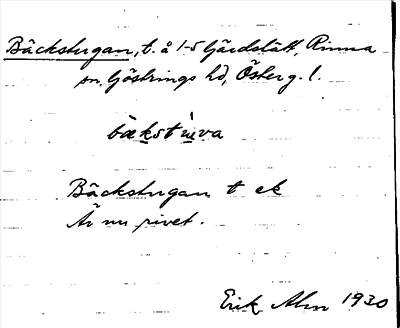 Bäckstugan, t. å 1-5 Gärdslätt, Rinna
sn. Göstrings hd, Österg. l.
bäkstùva
Bäckstugan t ek
Är nu rivet.
Erik Alm 1930